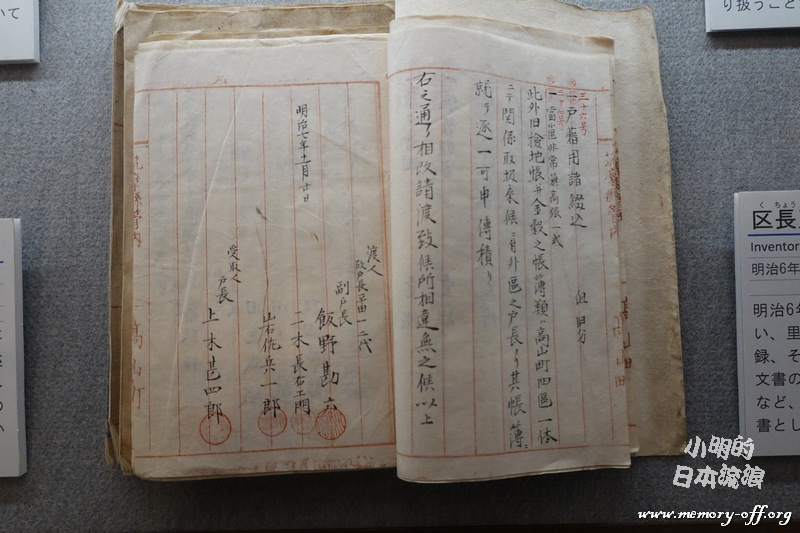 三十六号
戸籍用諸綴込
但旧分
一 当區非常簱高張一式
此外旧検地帳并金穀之帳簿類ハ高山町四區一体
ニテ関係取扱来候ニ付外區之戸長ヨリ其帳簿ニ
就テ逐一可申傳積リ
右之通リ相改請渡致候所相違無之候以上
明治七年十一月廿日
渡人
副戸長
飯野勘六
二木長右エ門
受取人
戸長
上木甚四郎
高山町
いて
り扱うこと
くちょう
区長
Inventor
明治6年
明治6年
い、里
録、そ
文書の
など、
書とし
小明的
日本流浪
www.memory-off.org